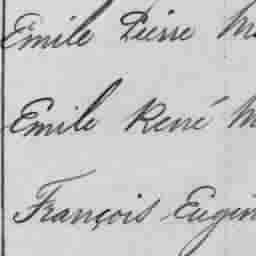 Emile Pierre
Emile René
François Eugèn